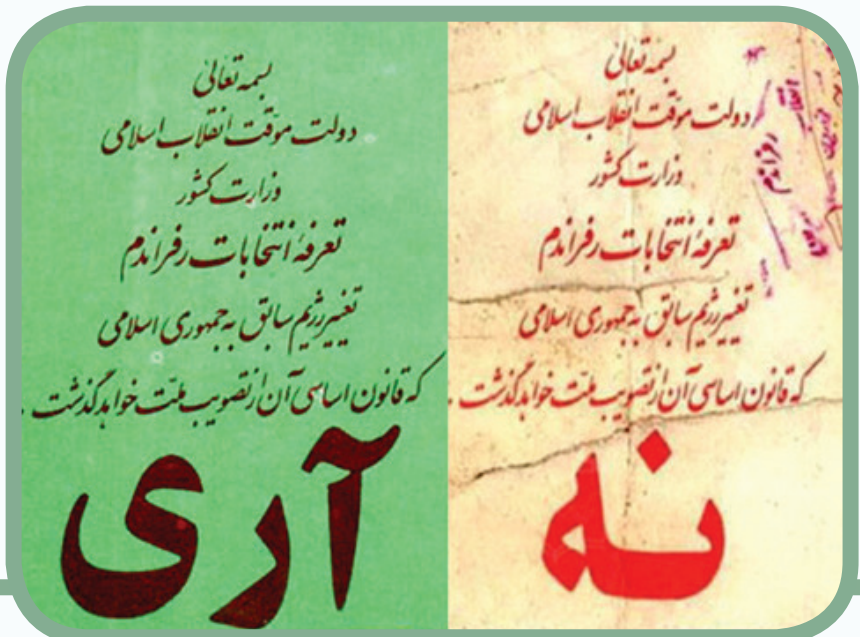 بسمه تعالی
دولت موقت انقلاب اسلامی
وزارت کشور
تعرفهٔ انتخابات رفراندم
تغییر رژیم سابق به جمهوری اسلامی
که قانون اساسی آن از تصویب ملت خواهد گذشت.
نه
بسمه تعالی
دولت موقّت انقلاب اسلامی
وزارت کشور
تعرفهٔ انتخابات رفراندم
تغییر رژیم سابق به جمهوری اسلامی
که قانون اساسی آن از تصویب ملّت خواهد گذشت.
آری
رفراندم